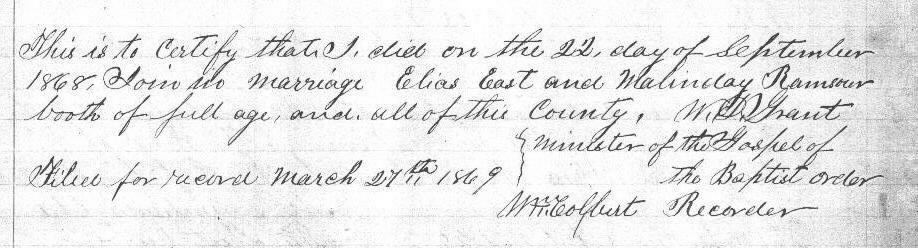 This is to Certify that I. did on the 22, day of September
1868, Join in marriage Elias East and Malinday Ramsour
booth of full age, and all of this County. W. D. Grant
Minister of the Gospel of
Filed for record March 27th, 1869 the Baptist order
Wm Colbert Recorder